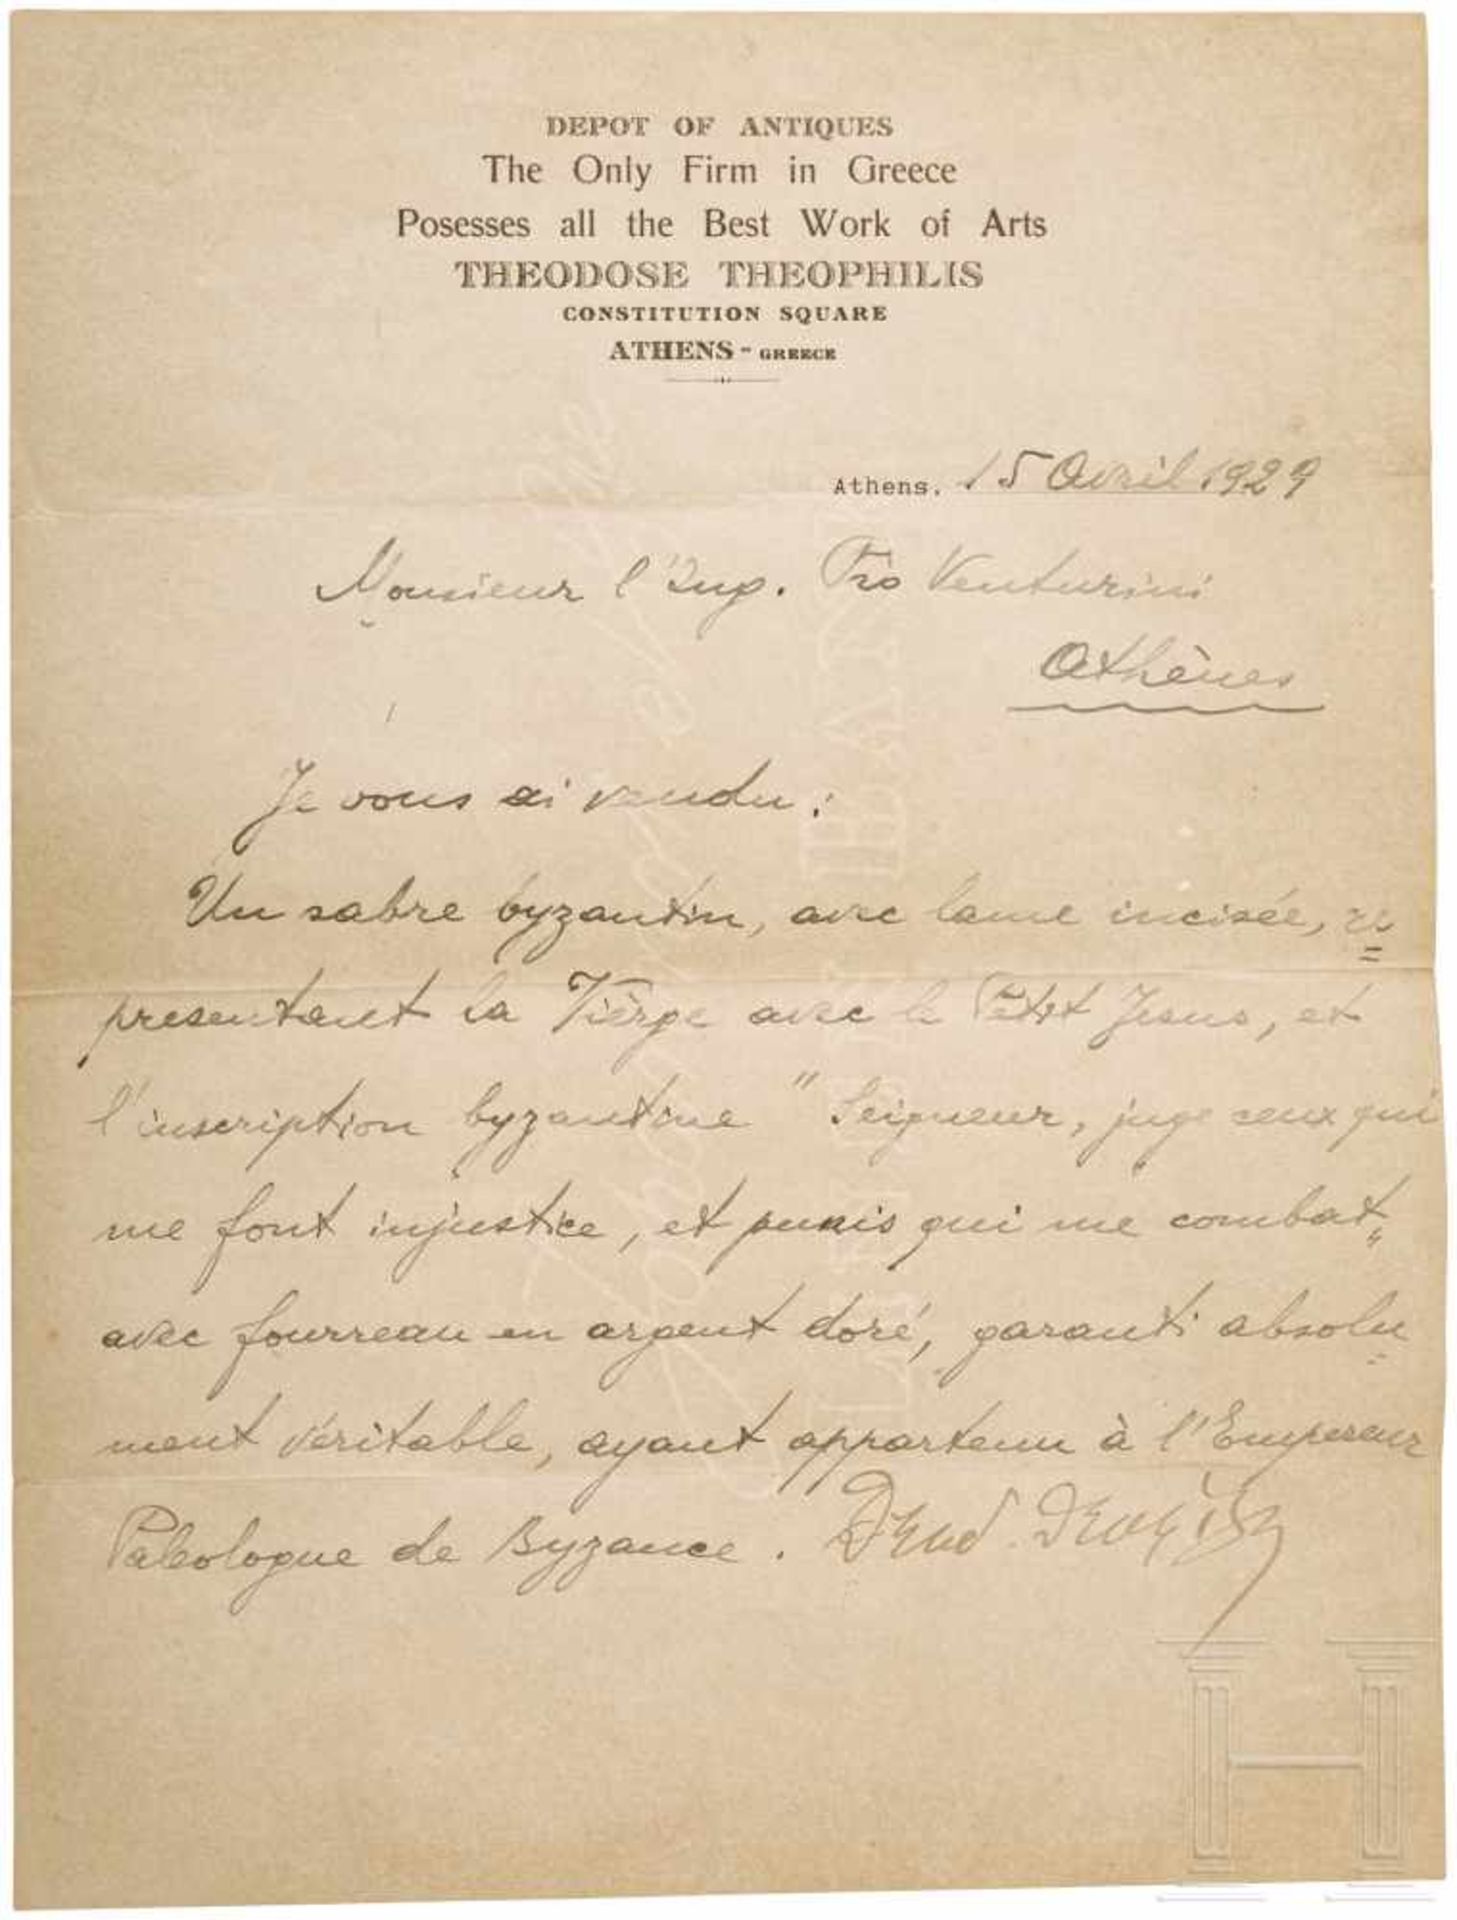 DEPOT OF ANTIQUES
The Only Firm in Greece
Posesses all the Best Work of Arts
THEODOSE THEOPHILIS
CONSTITUTION SQUARE
ATHENS - GREECE
Athens, 15 Avril 1929
Monsieur l'Ing. Pio Venturini
Athènes
Je vous ai vendu :
Un sabre byzantin, avec lame incisée, re=
presentant la Vièrge avec le Petit Jesus, et
l'inscription byzantine "Seigneur, juge ceux qui
me font injustice, et punis qui me combat"
avec fourreau en argent doré, garanti absolu=
ment véritable, ayant appartenu à l'Empereur
Paleologue de Byzance.